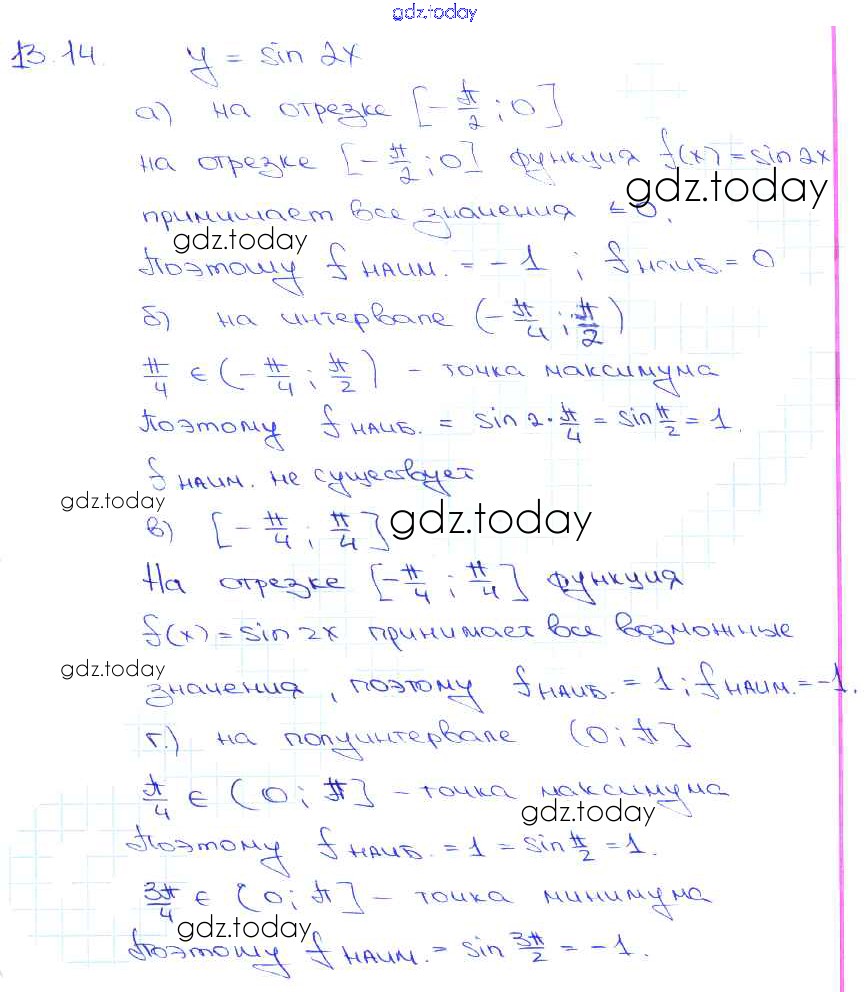 gdz.today
13.14. y = sin 2x
а) на отрезке [-π/2 ; 0]
на отрезке [-π/2 ; 0] функция f(x) = sin 2x
gdz.today
принимает все значения ≤ 0.
gdz.today
Поэтому f наим. = -1 ; f наиб. = 0
б) на интервале (-π/4 ; π/2)
π/4 ∈ (-π/4 ; π/2) - точка максимума
Поэтому f наиб. = sin 2·π/4 = sin π/2 = 1.
f наим. не существует
gdz.today
в) [-π/4 ; π/4]
gdz.today
На отрезке [-π/4 ; π/4] функция
f(x) = sin 2x принимает все возможные
gdz.today
значения, поэтому f наиб. = 1 ; f наим. = -1.
г.) на полуинтервале (0 ; π]
π/4 ∈ (0 ; π] - точка максимума
gdz.today
Поэтому f наиб. = 1 = sin π/2 = 1.
3π/4 ∈ (0 ; π] - точка минимума
gdz.today
Поэтому f наим. = sin 3π/2 = -1.